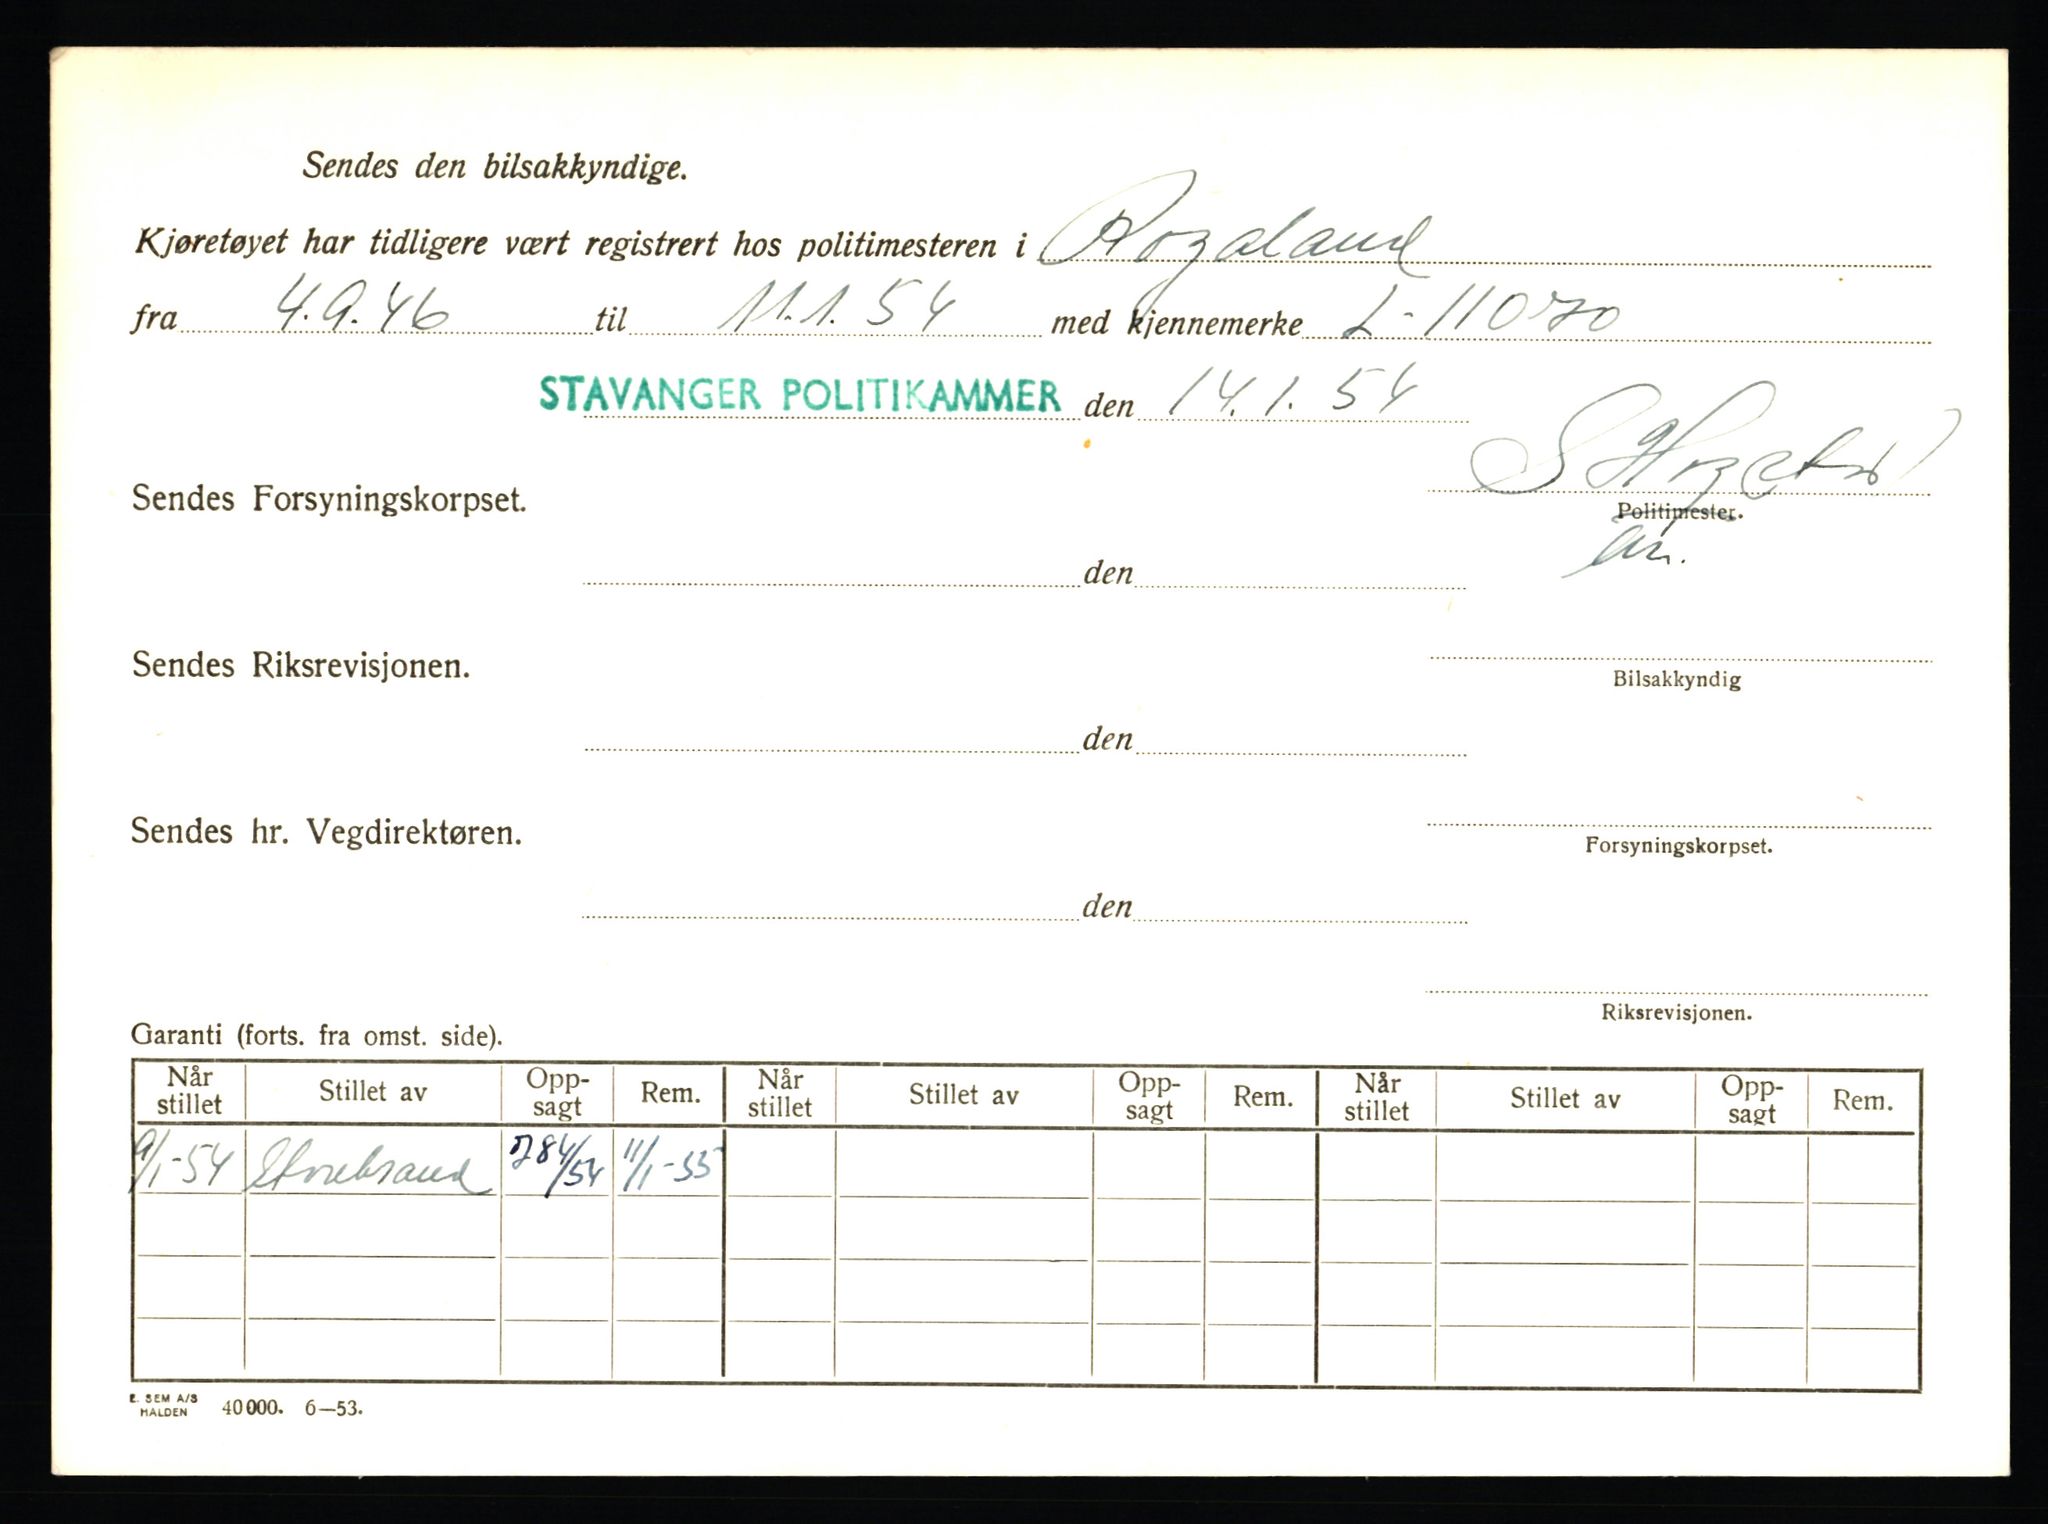 Sendes den bilsakkyndige.
Kjøretøyet har tidligere vært registrert hos politimesteren i Rogaland
fra 4.9.46 til 11.1.54 med kjennemerke L-11070
STAVANGER POLITIKAMMER den 14.1.54
Sendes Forsyningskorpset.
Politimester.
den
Sendes Riksrevisjonen.
Bilsakkyndig
den
Sendes hr. Vegdirektøren.
Forsyningskorpset.
den
Riksrevisjonen.
Garanti (forts. fra omst. side).
Når stillet Stillet av Opp-sagt Rem. Når stillet Stillet av Opp-sagt Rem. Når stillet Stillet av Opp-sagt Rem.
9/1-54 Storebrand 784/54 11/1-55
E. SEM A/S
HALDEN 40000. 6—53.